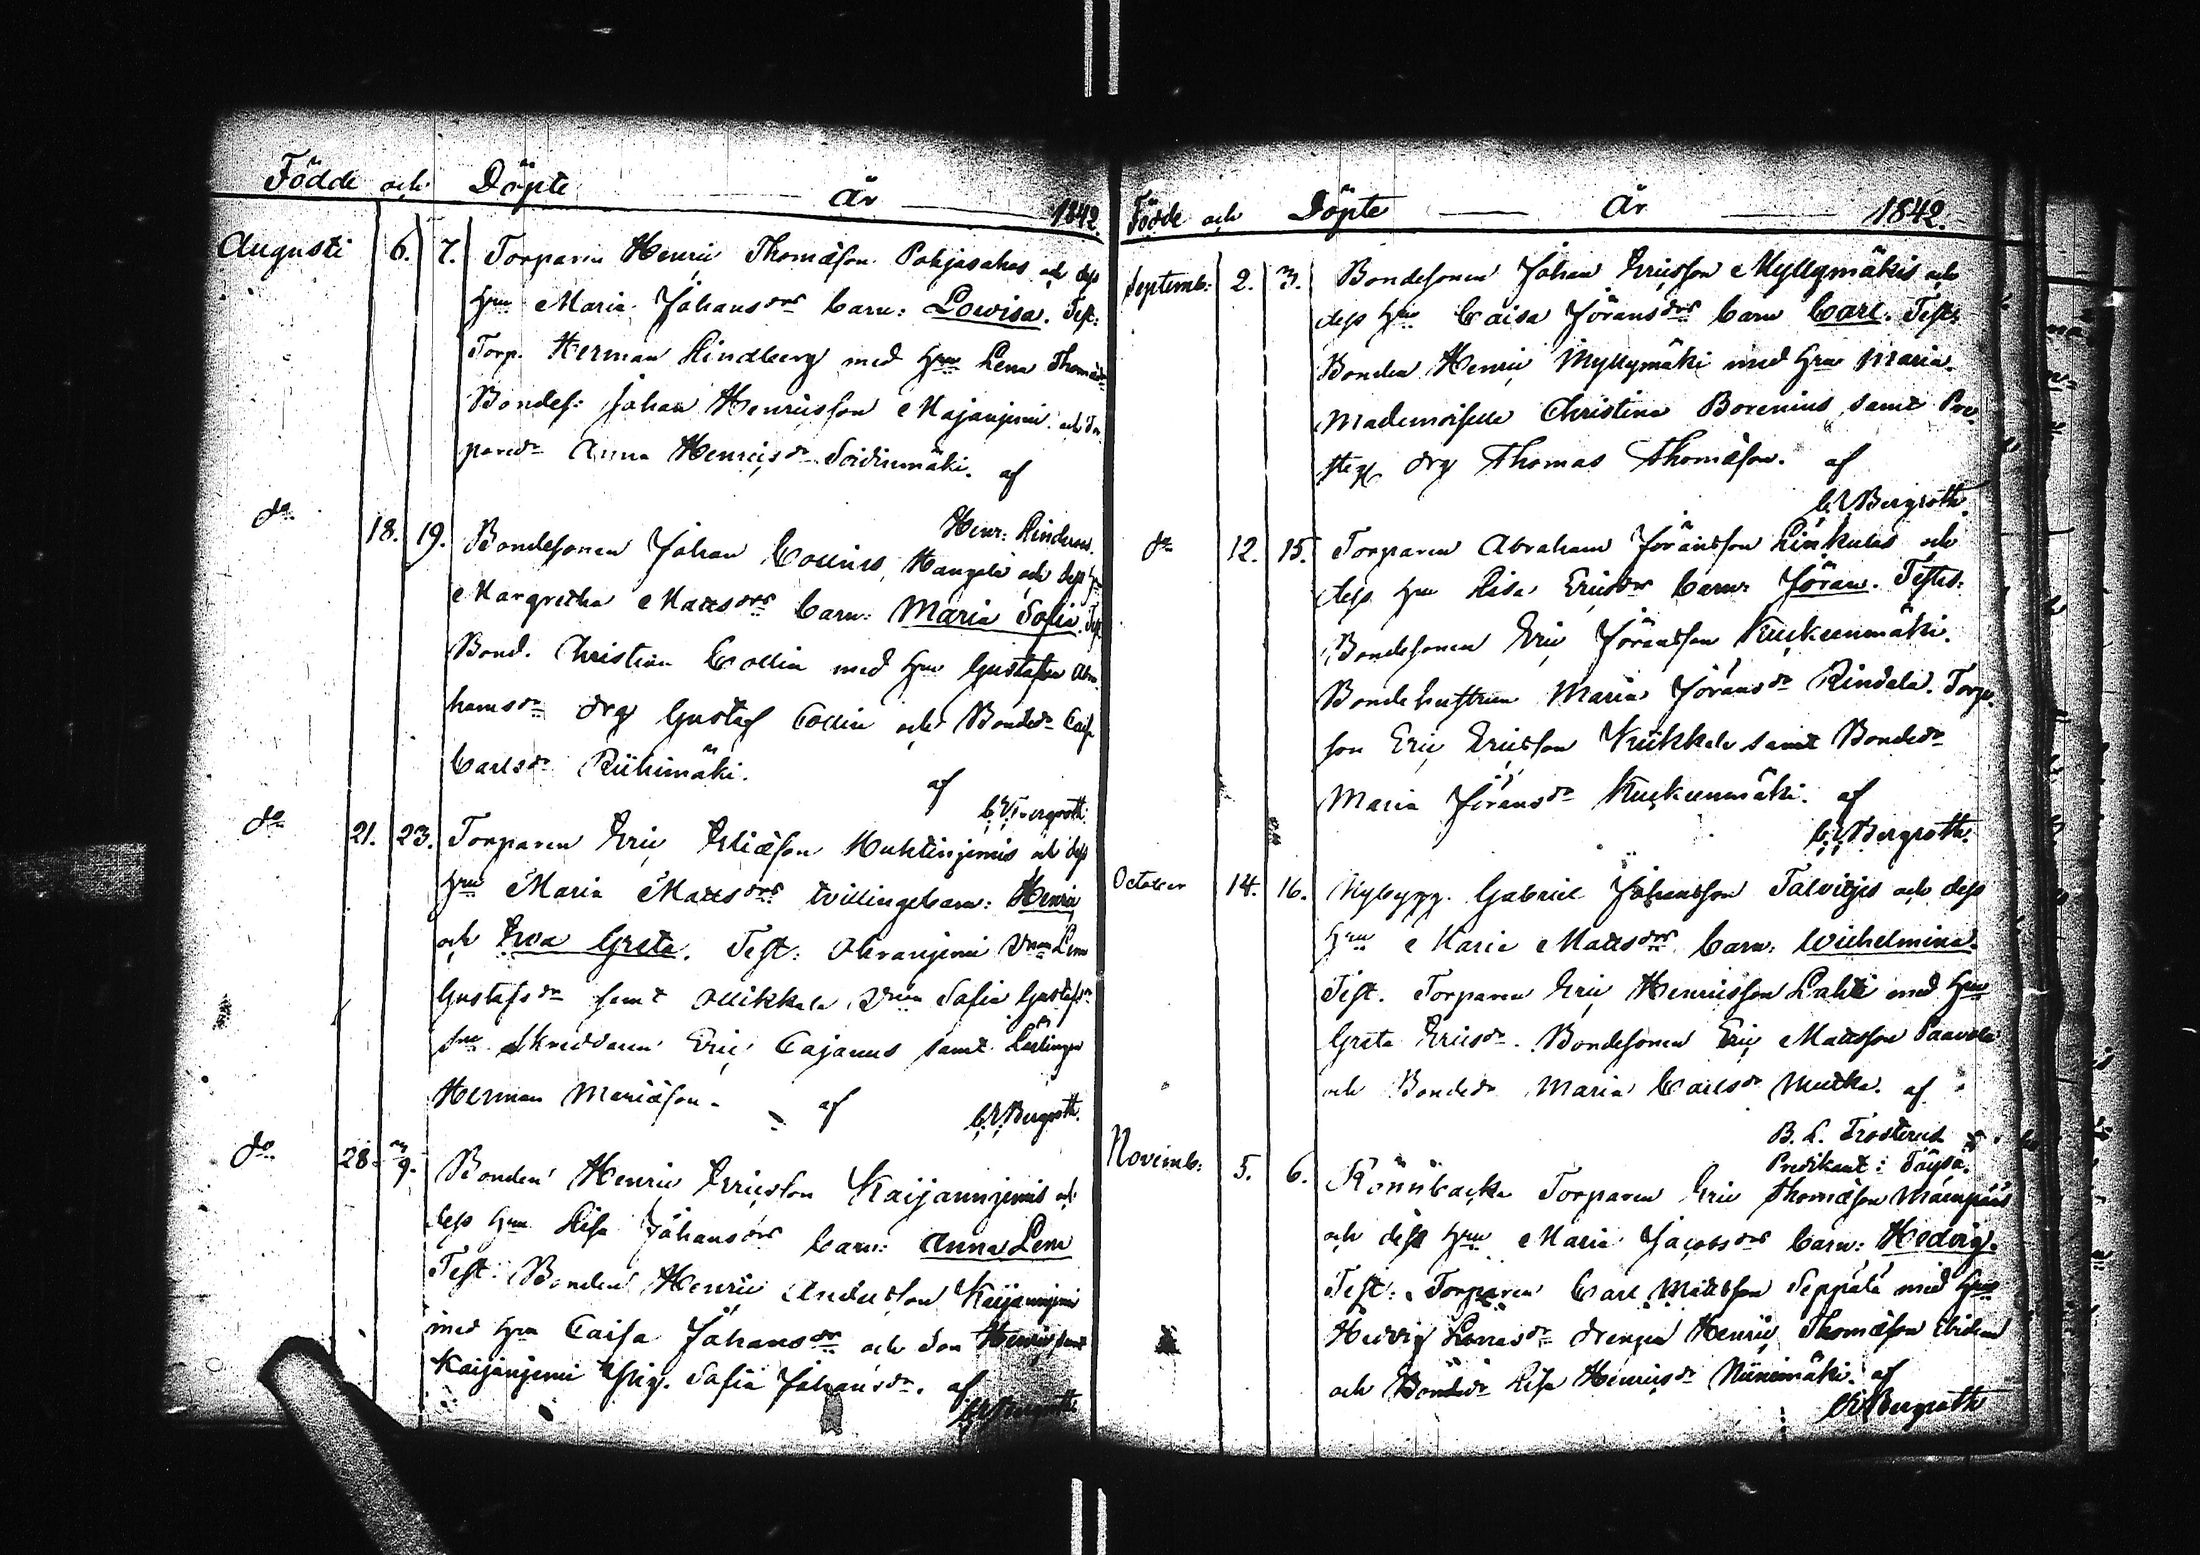 Födde och Döpte År 1842
Augusti 6. 7. Torparen Henric Thomæson Pohjasahos och dess
Hru Maria Johansdrs barn: Lowisa. Test:
Torp. Herman Lindberg med Hru Lena Thomædr
Bondes: Johan Henricsson Majanjemi och
Anna Henricsdr Soidinmäki. af
Henr:
do 18. 19. Bondesonen Johan Collins, Hangala och dess
Margretha Mattsdrs barn: Maria Sofia. Test.
Bond. Christian Collin med Hru Gustafva Abra
hamsdr drg Gustaf Collin och Bondedr Caisa
Carlsdr Riihimäki. af
C.E. Bergroth.
do 21. 23. Torparen Eric Eliæson Huhtinjemis och dess
Hru Maria Mattsdrs tvillingebarn: Henric
och Eva Greta. Test: Lena
Gustafsdr samt Ollikkala Sofia Gustafsdr
Skreddaren Eric Cajanus samt
Herman Mariæson. af
C.E. Bergroth.
do 28. 9. Bonden Henric Ericsson Kaijannjemis och
dess Hru Lisa Johansdrs barn: Anna Lena
Test: Bonden Henric Andersson Kaijannjemi
med Hru Caisa Johansdr och Son Henric samt
Kaijanjemi Sofia Johansdr. af
C.E. Bergroth
Födde och Döpte År 1842.
Septemb: 2. 3. Bondesonen Johan Ericsson Myllymäkis och
dess Hru Caisa Jöransdrs barn Carl. Test:
Bonden Henric Myllymäki med Hru Maria.
Mademoiselle Christina Borenius samt Pre
steg. drg Thomas Thomæson. af
C.E. Bergroth.
do 12. 15. Torparen Abraham Jöransson Linkulas och
dess Hru Lisa Ericsdrs barn: Jöran. Testes:
Bondesonen Eric Jöransson Kuckunmäki.
Bondehustrun Maria Jöransdr Rindala. Torpa
son Eric Ericsson samt Bondedr
Maria Jöransdr Kuckunmäki. af
C.E. Bergroth.
October 14. 16. Nybygg. Gabriel Johansson Talvitjes och dess
Hru Maria Mattsdrs barn: Wilhelmina.
Test. Torparen Eric Henricsson Lahti med Hru
Greta Ericsdr. Bondesonen Eric Mattsson Paavola
och Bondedr Maria Carlsdr Mutka. af
B. L. Frosterus
Predikant i Töysä.
Novemb: 5. 6. Rönnbacka Torparen Eric Thomæson
och dess Hru Maria Jacobsdrs barn: Hedvig.
Test: Torparen Carl Mattsson Seppälä med Hru
Hedvig drengen Henric Thomæson ibidem
och Bondedr Lisa Henricsdr Niinimäki. af
C.E. Bergroth